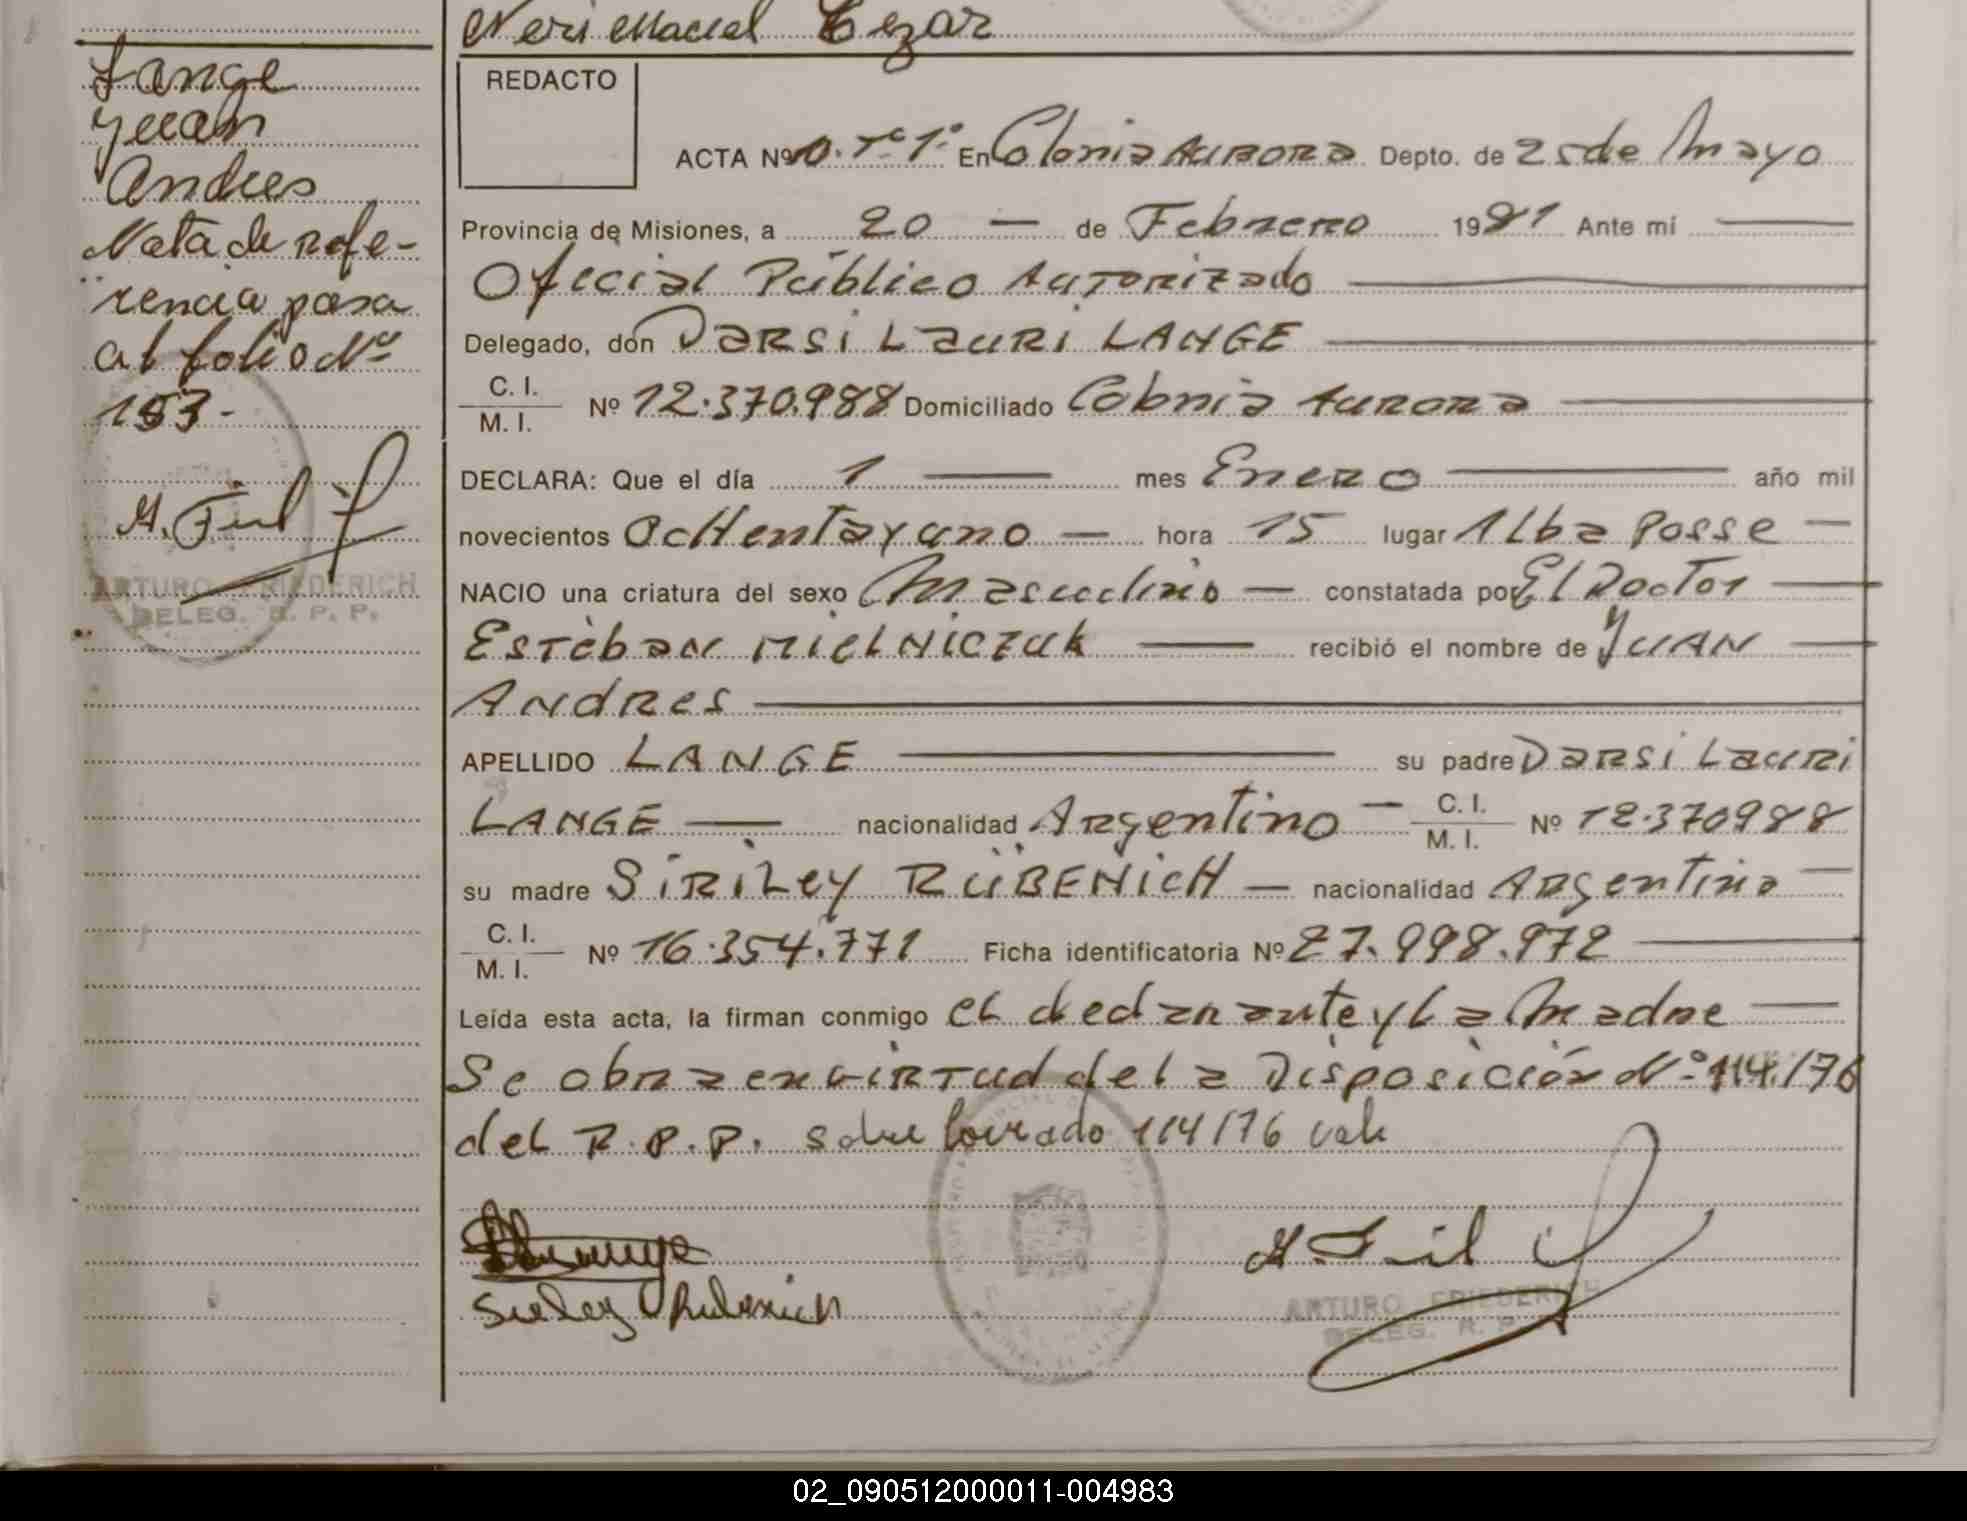 Neri Maciel Cezar
Lange
Juan
Andres
Nota de refe-
rencia pasa
al folio Nº
153-
ARTURO FRIEDERICH
DELEG. R. P. P.
REDACTO
ACTA Nº 0. Tº 1º En Colonia Aurora Depto. de 25 de Mayo
Provincia de Misiones, a 20 — de Febrero 1981 Ante mí
Oficial Público Autorizado
Delegado, don Darsi Lauri LANGE
C. I.
M. I. Nº 12.370.988 Domiciliado Colonia Aurora
DECLARA: Que el día 1 — mes Enero — año mil
novecientos ocHentayuno — hora 15 lugar Alba Posse —
NACIO una criatura del sexo Masculino — constatada por El Doctor
Estéban MiELNiCZUK — recibió el nombre de JUAN
ANdRes
APELLIDO LANGE — su padre Darsi Lauri
LANGE — nacionalidad Argentino — C. I.
M. I. Nº 12.370988
su madre SiRiLey RÜBENicH — nacionalidad Argentina —
C. I.
M. I. Nº 16.354.771 Ficha identificatoria Nº 27.998.972
Leída esta acta, la firman conmigo el declarante y La Madre
Se obra en virtud de la Disposición Nº 114/76
del R.P.P. sobre borrado 114/76 vale
Sirley Rubenich
ARTURO FRIEDERICH
DELEG. R. P.
02_090512000011-004983